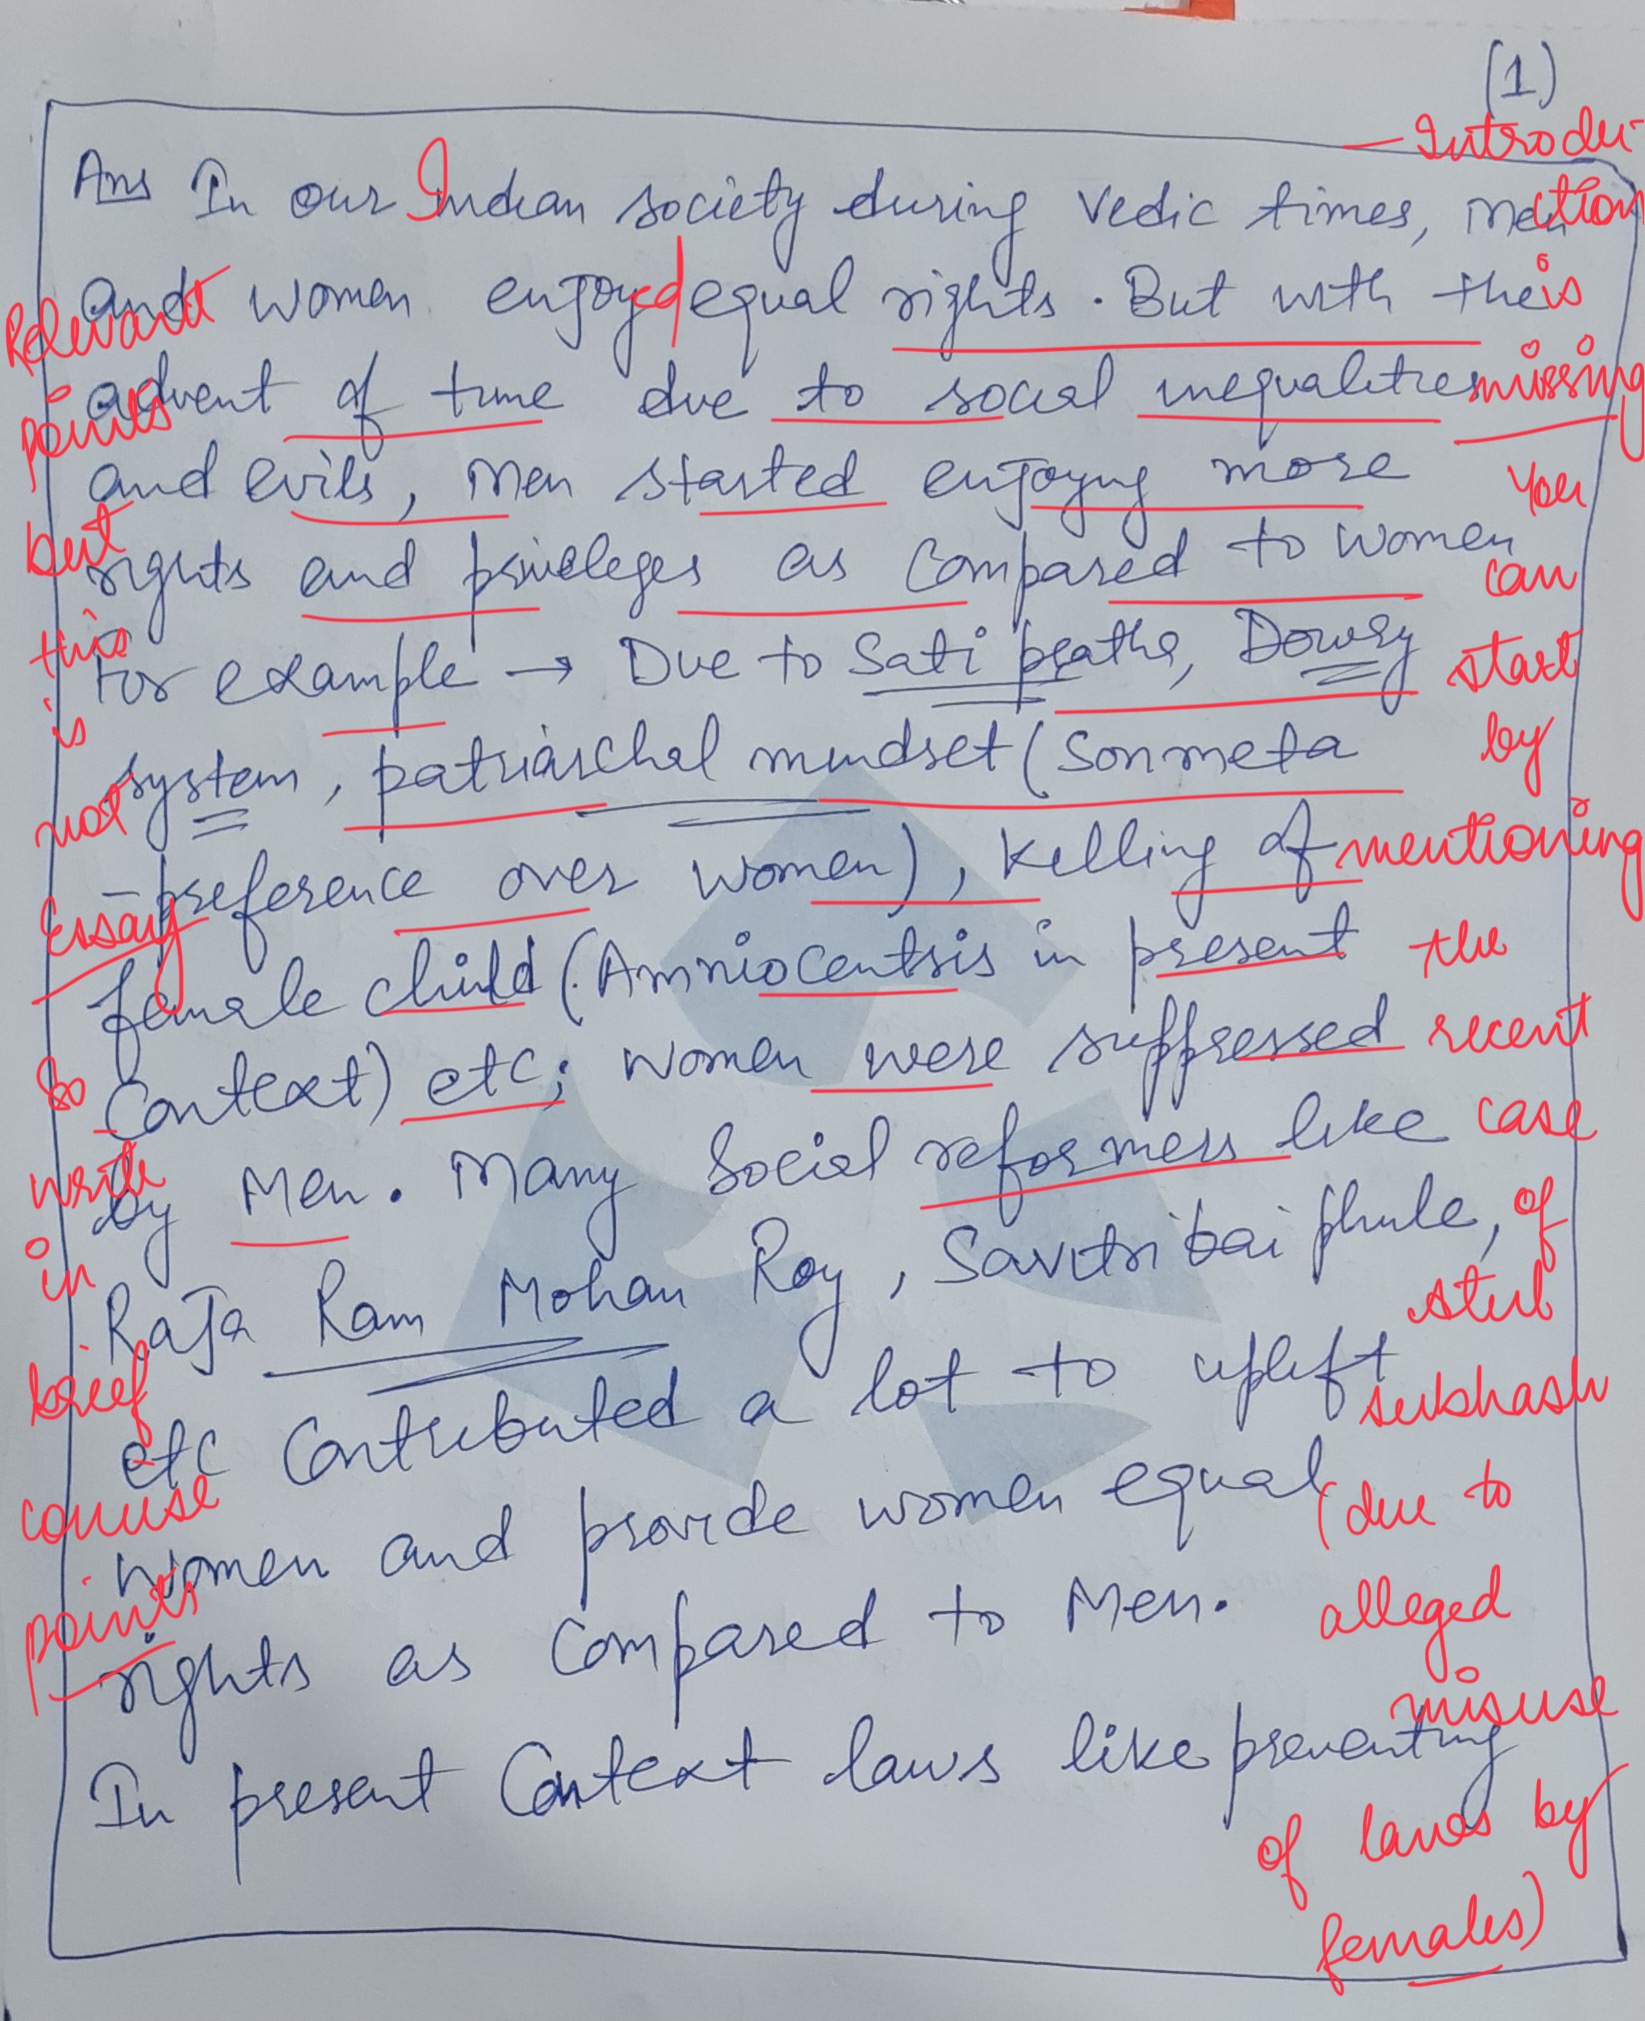 (1)
Ans In our Indian society during Vedic times, Men
and women enjoyed equal rights. But with the
advent of time due to social inequalities
and evils, Men started enjoying more
rights and privileges as Compared to women
For example → Due to Sati pratha, Dowry
system, patriarchal mindset (Son meta
-preference over women), Killing of
female child (Amniocentsis in present
Context) etc; women were suppressed
by Men. Many Social reformers like
Raja Ram Mohan Roy, Savitri bai phule,
etc Contributed a lot to uplift
women and provide women equal
rights as Compared to Men.
In present Context laws like preventing
Relevant
points
but
this
is
not
Essay
So
write
in
brief
concise
points
— Introdu-
ction
is
missing
You
can
start
by
mentioning
the
recent
case
of
atul
subhash
(due to
alleged
misuse
of laws by
females)